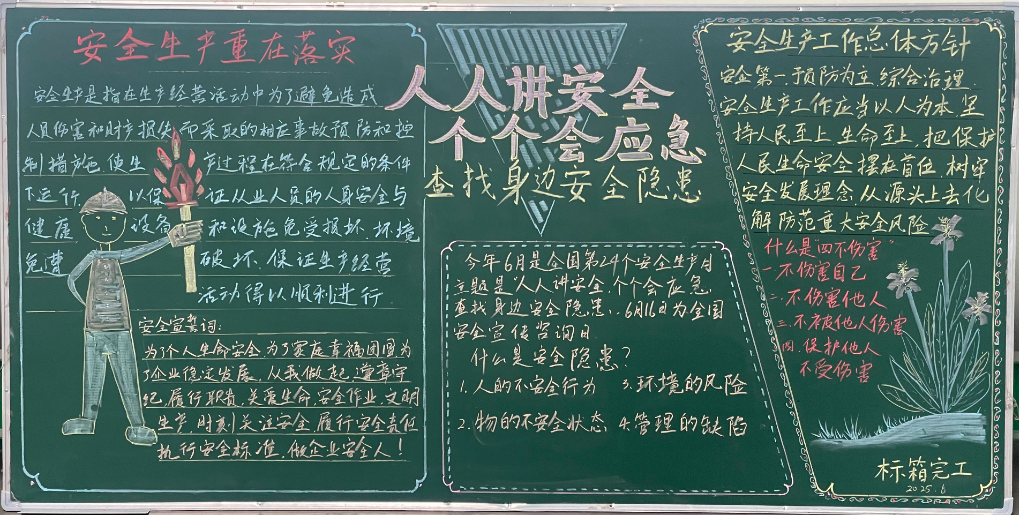 安全生产重在落实
安全生产是指在生产经营活动中为了避免造成
人员伤害和财产损失而采取的相应事故预防和控
制措施,使生产过程在符合规定的条件
下运行,以保证从业人员的人身安全与
健康,设备和设施免受损坏,环境
免遭破坏,保证生产经营
活动得以顺利进行.
安全宣誓词:
为了个人生命安全,为了家庭幸福团圆,为
了企业稳定发展,从我做起,遵章守
纪,履行职责,关爱生命,安全作业,文明
生产,时刻关注安全,履行安全责任
执行安全标准,做企业安全人!
人人讲安全
个个会应急
查找身边安全隐患
今年6月是全国第24个安全生产月
主题是"人人讲安全,个个会应急,
查找身边安全隐患",6月16日为全国
安全宣传咨询日.
什么是安全隐患?
1.人的不安全行为 3.环境的风险
2.物的不安全状态 4.管理的缺陷
安全生产工作总体方针
安全第一,预防为主,综合治理.
安全生产工作应当以人为本,坚
持人民至上,生命至上,把保护
人民生命安全摆在首位,树牢
安全发展理念,从源头上去化
解防范重大安全风险
什么是"四不伤害"
一.不伤害自己
二.不伤害他人
三.不被他人伤害
四.保护他人
不受伤害
标箱完工
2025.6